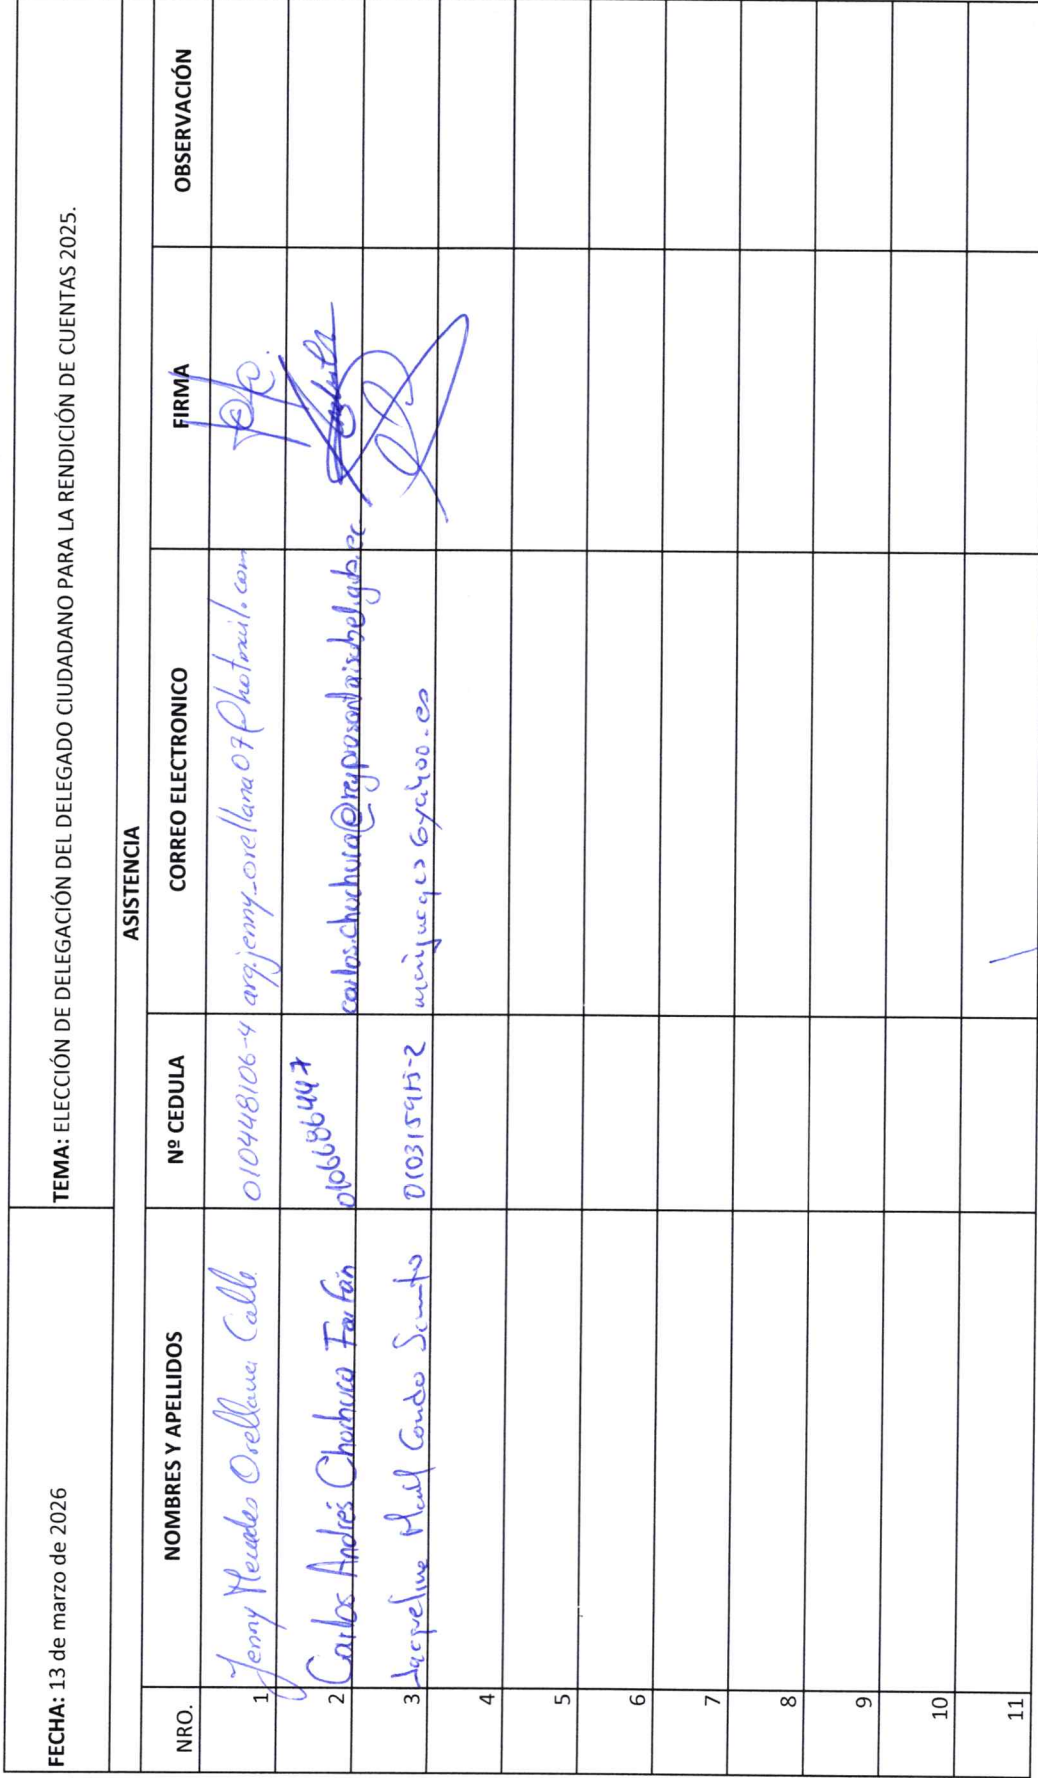 FECHA: 13 de marzo de 2026 TEMA: ELECCIÓN DE DELEGACIÓN DEL DELEGADO CIUDADANO PARA LA RENDICIÓN DE CUENTAS 2025.
ASISTENCIA
NRO. NOMBRES Y APELLIDOS Nº CEDULA CORREO ELECTRONICO FIRMA OBSERVACIÓN
1 Jenny Mercedes Orellana Calle 010448106-4 arq.jenny_orellana07@hotmail.com
2 Carlos Andrés Chuchuca Farfán 0106686447 carlos.chuchuca@regprosantaisabel.gob.ec
3 Jacqueline Conde
4
5
6
7
8
9
10
11